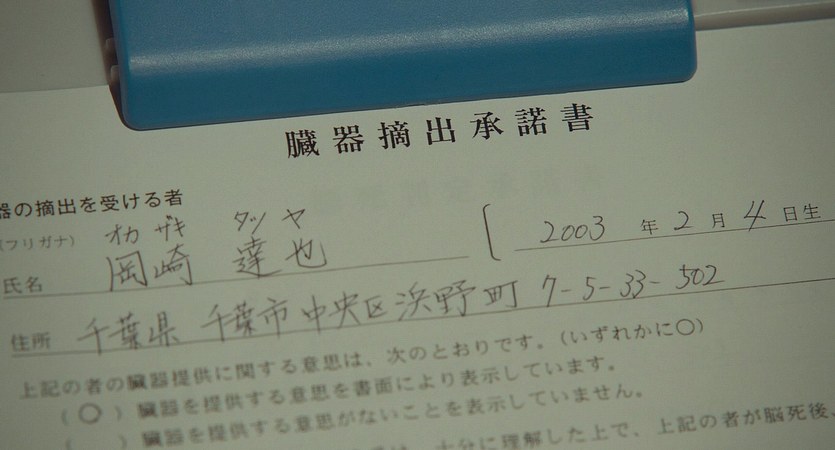 臓器摘出承諾書
器の摘出を受ける者
(フリガナ) オカ ザキ タツ ヤ
氏名 岡崎 達也 ( 2003 年 2 月 4 日生
住所 千葉県 千葉市 中央区 浜野町 7-5-33-502
上記の者の臓器提供に関する意思は、次のとおりです。(いずれかに○)
(○) 臓器を提供する意思を書面により表示しています。
( ) 臓器を提供する意思がないことを表示していません。
十分に理解した上で、上記の者が脳死後、